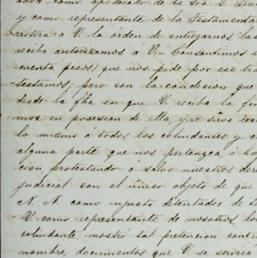 como apoderado de la Sra. D.
y como representante de la Testamentar
á V. la orden de entregarnos las
recibo autorizamos á V. Consentimos e
cuenta pesos, que nos pide por ese tra
testamos, pero con la condicion que
desde la fha en que V. reciba la
mos en posesion de ella, y se sirva
lo mismo á todos los colindantes y
alguna parte que nos pertenezca, ó
cion, protestando á salvo nuestros dere
judicial con el único objeto de que
N. N. como injusto detentador de
V. como representante de nosotros
colindante, mostró tal pretencion contra
nombre, documentos que V. se servirá